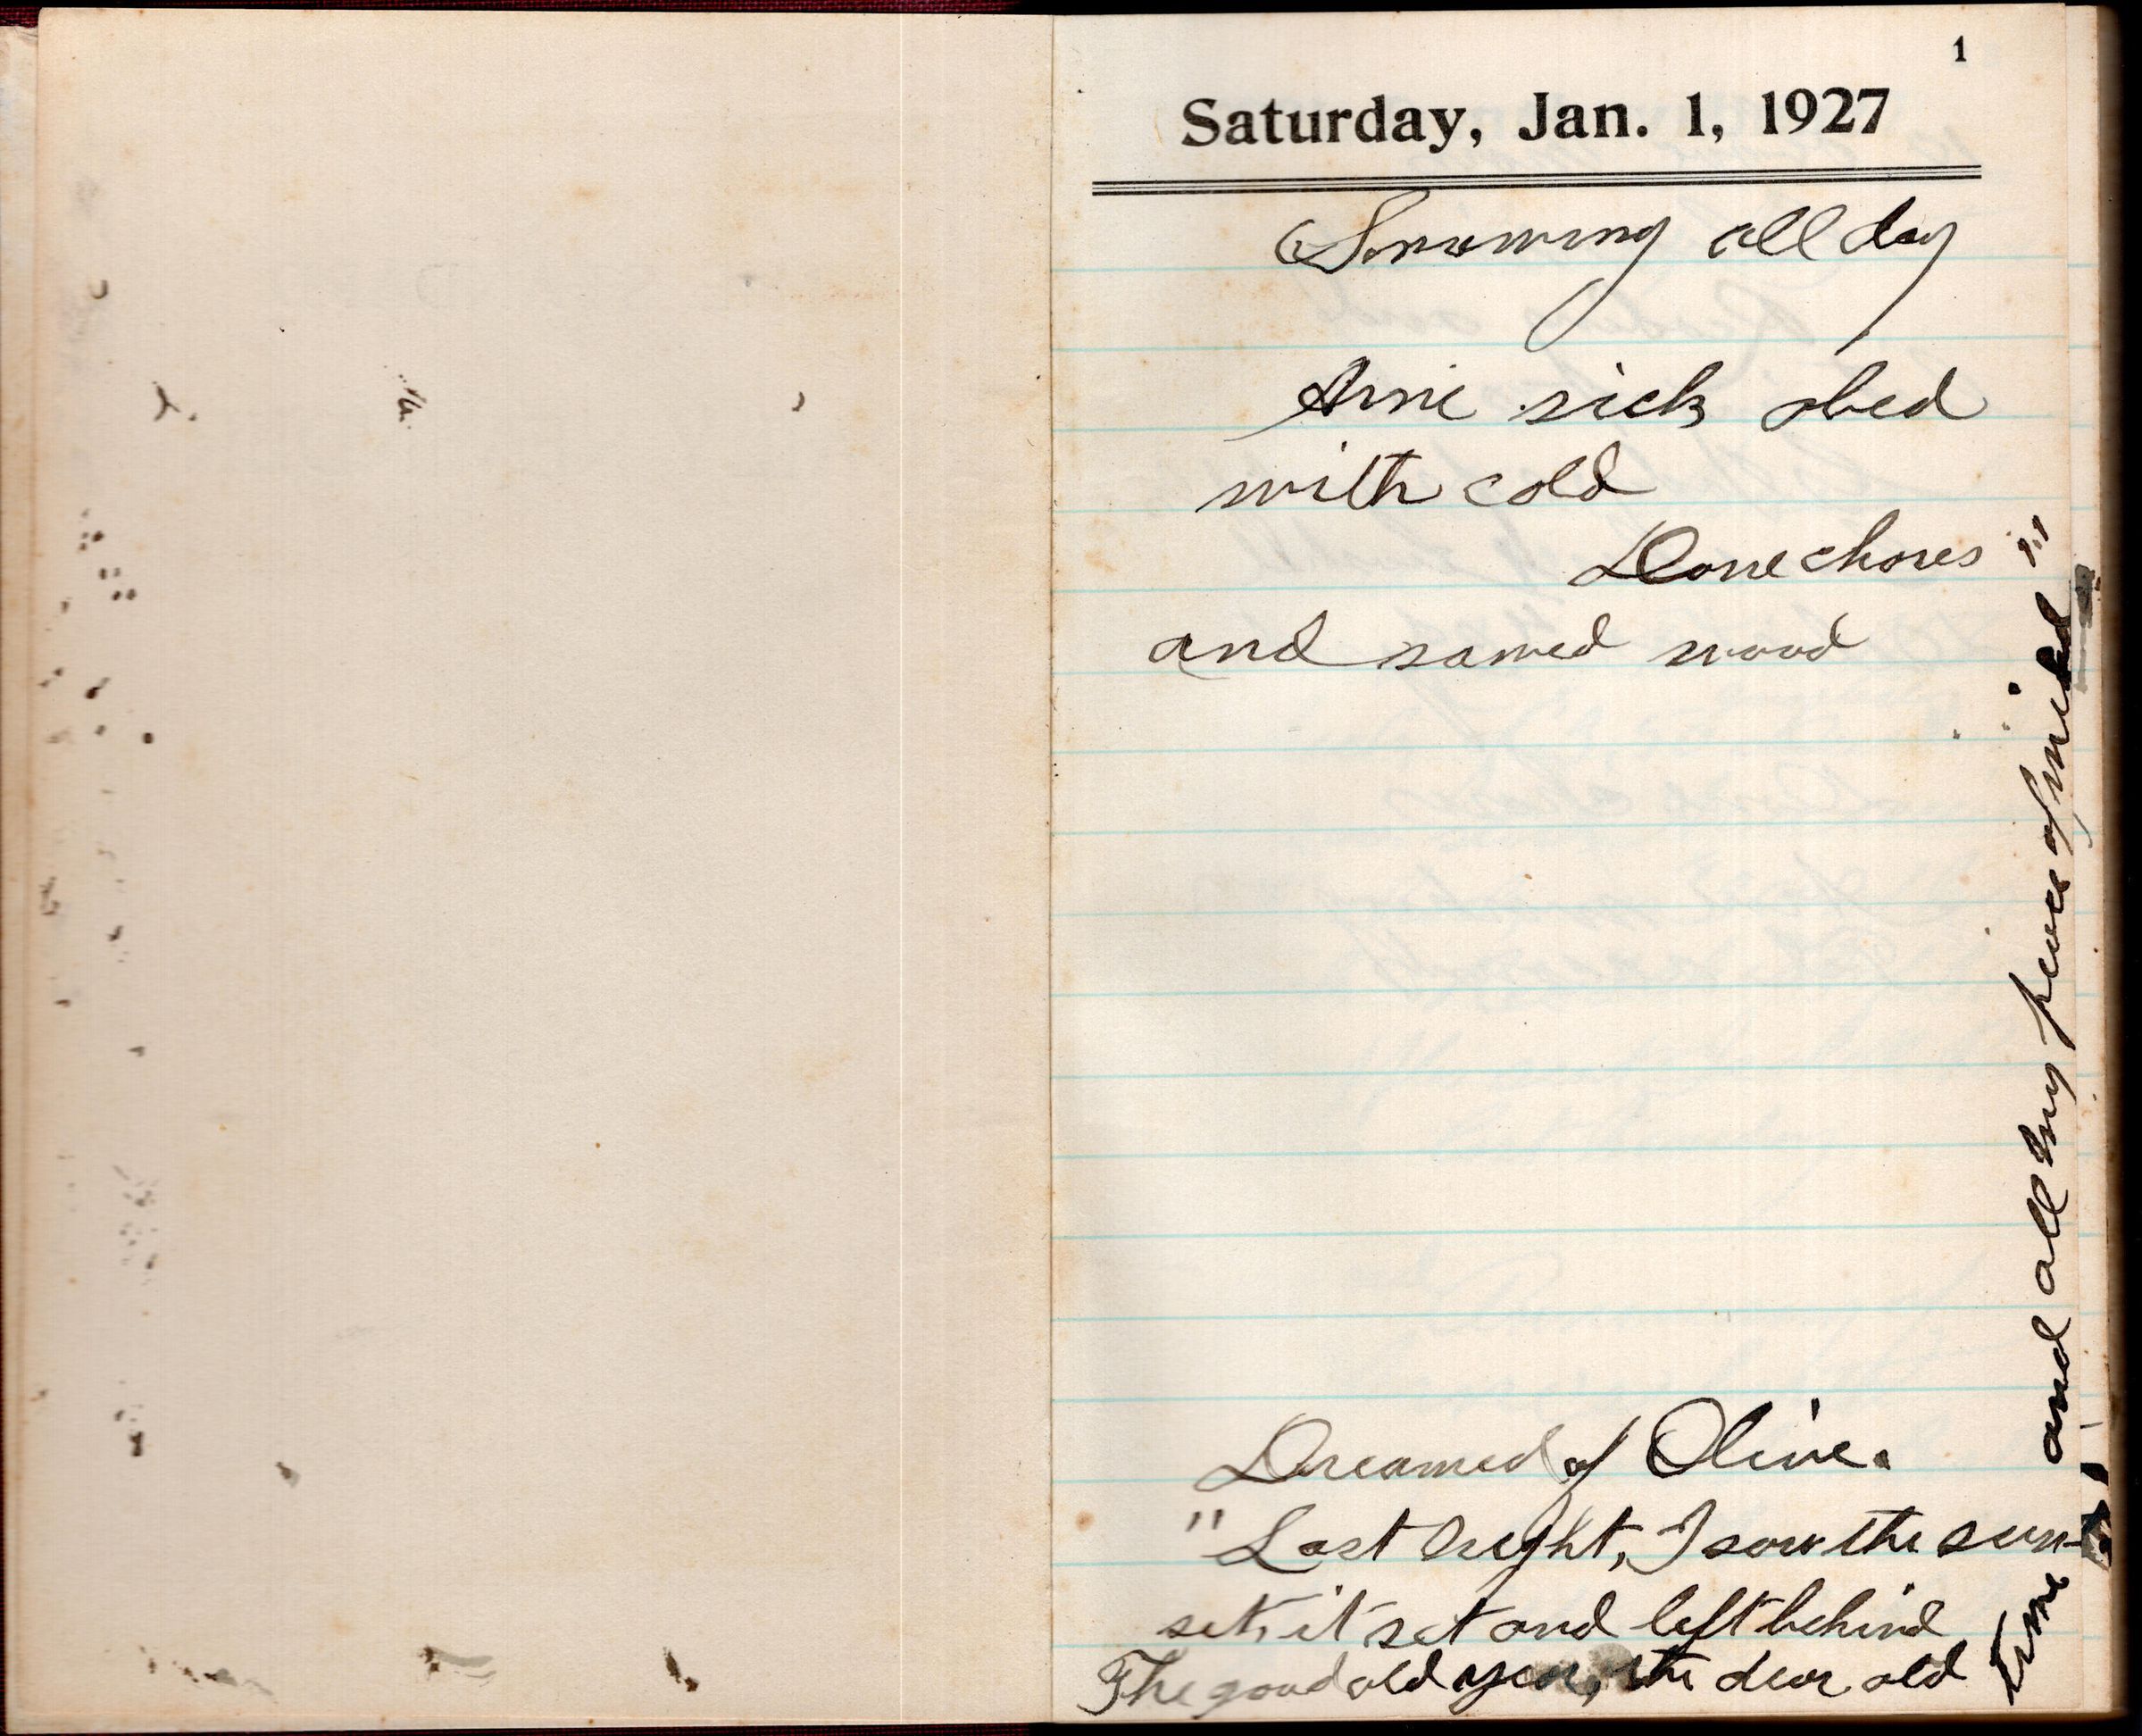 1
Saturday, Jan. 1, 1927
Snowing all day
Arne sick abed
with cold
Done chores
and sawed wood
Dreamed of Olive.
"Last night, I saw the sun-
set, it set and left behind
The good old year, the dear old
time and all my peace of mind"